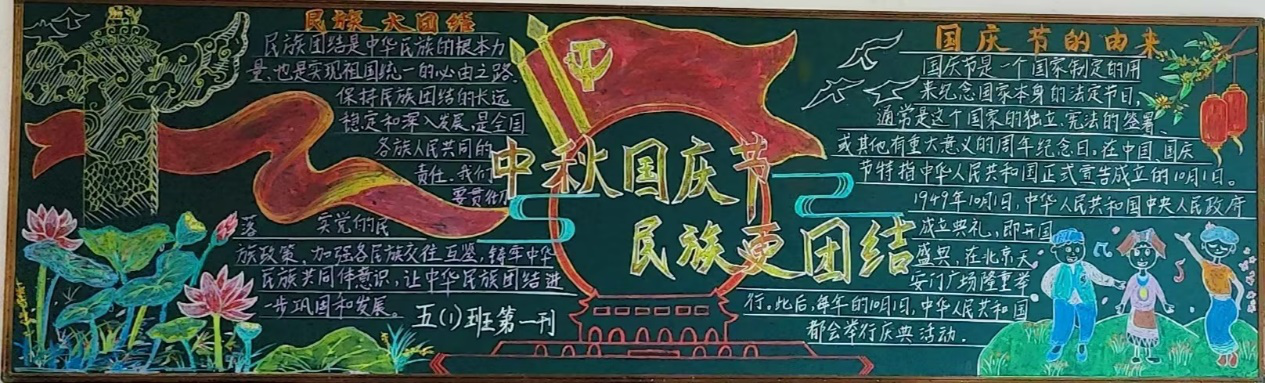 民族大团结
民族团结是中华民族的根本力
量,也是实现祖国统一的必由之路.
保持民族团结的长远
稳定和深入发展,是全国
各族人民共同的
责任.我们
要贯彻
落 实党的民
族政策、加强各民族交往互鉴,铸牢中华
民族共同体意识,让中华民族团结进
一步巩固和发展。
五(1)班第一刊
中秋国庆节
民族更团结
国庆节的由来
国庆节是一个国家制定的用
来纪念国家本身的法定节日,
通常是这个国家的独立.宪法的签署、
或其他有重大意义的周年纪念日.在中国、国庆
节特指中华人民共和国正式宣告成立的10月1日。
1949年10月1日,中华人民共和国中央人民政府
成立典礼,即开国
盛典,在北京天
安门广场隆重举
行。此后,每年的10月1日,中华人民共和国
都会举行庆典活动.